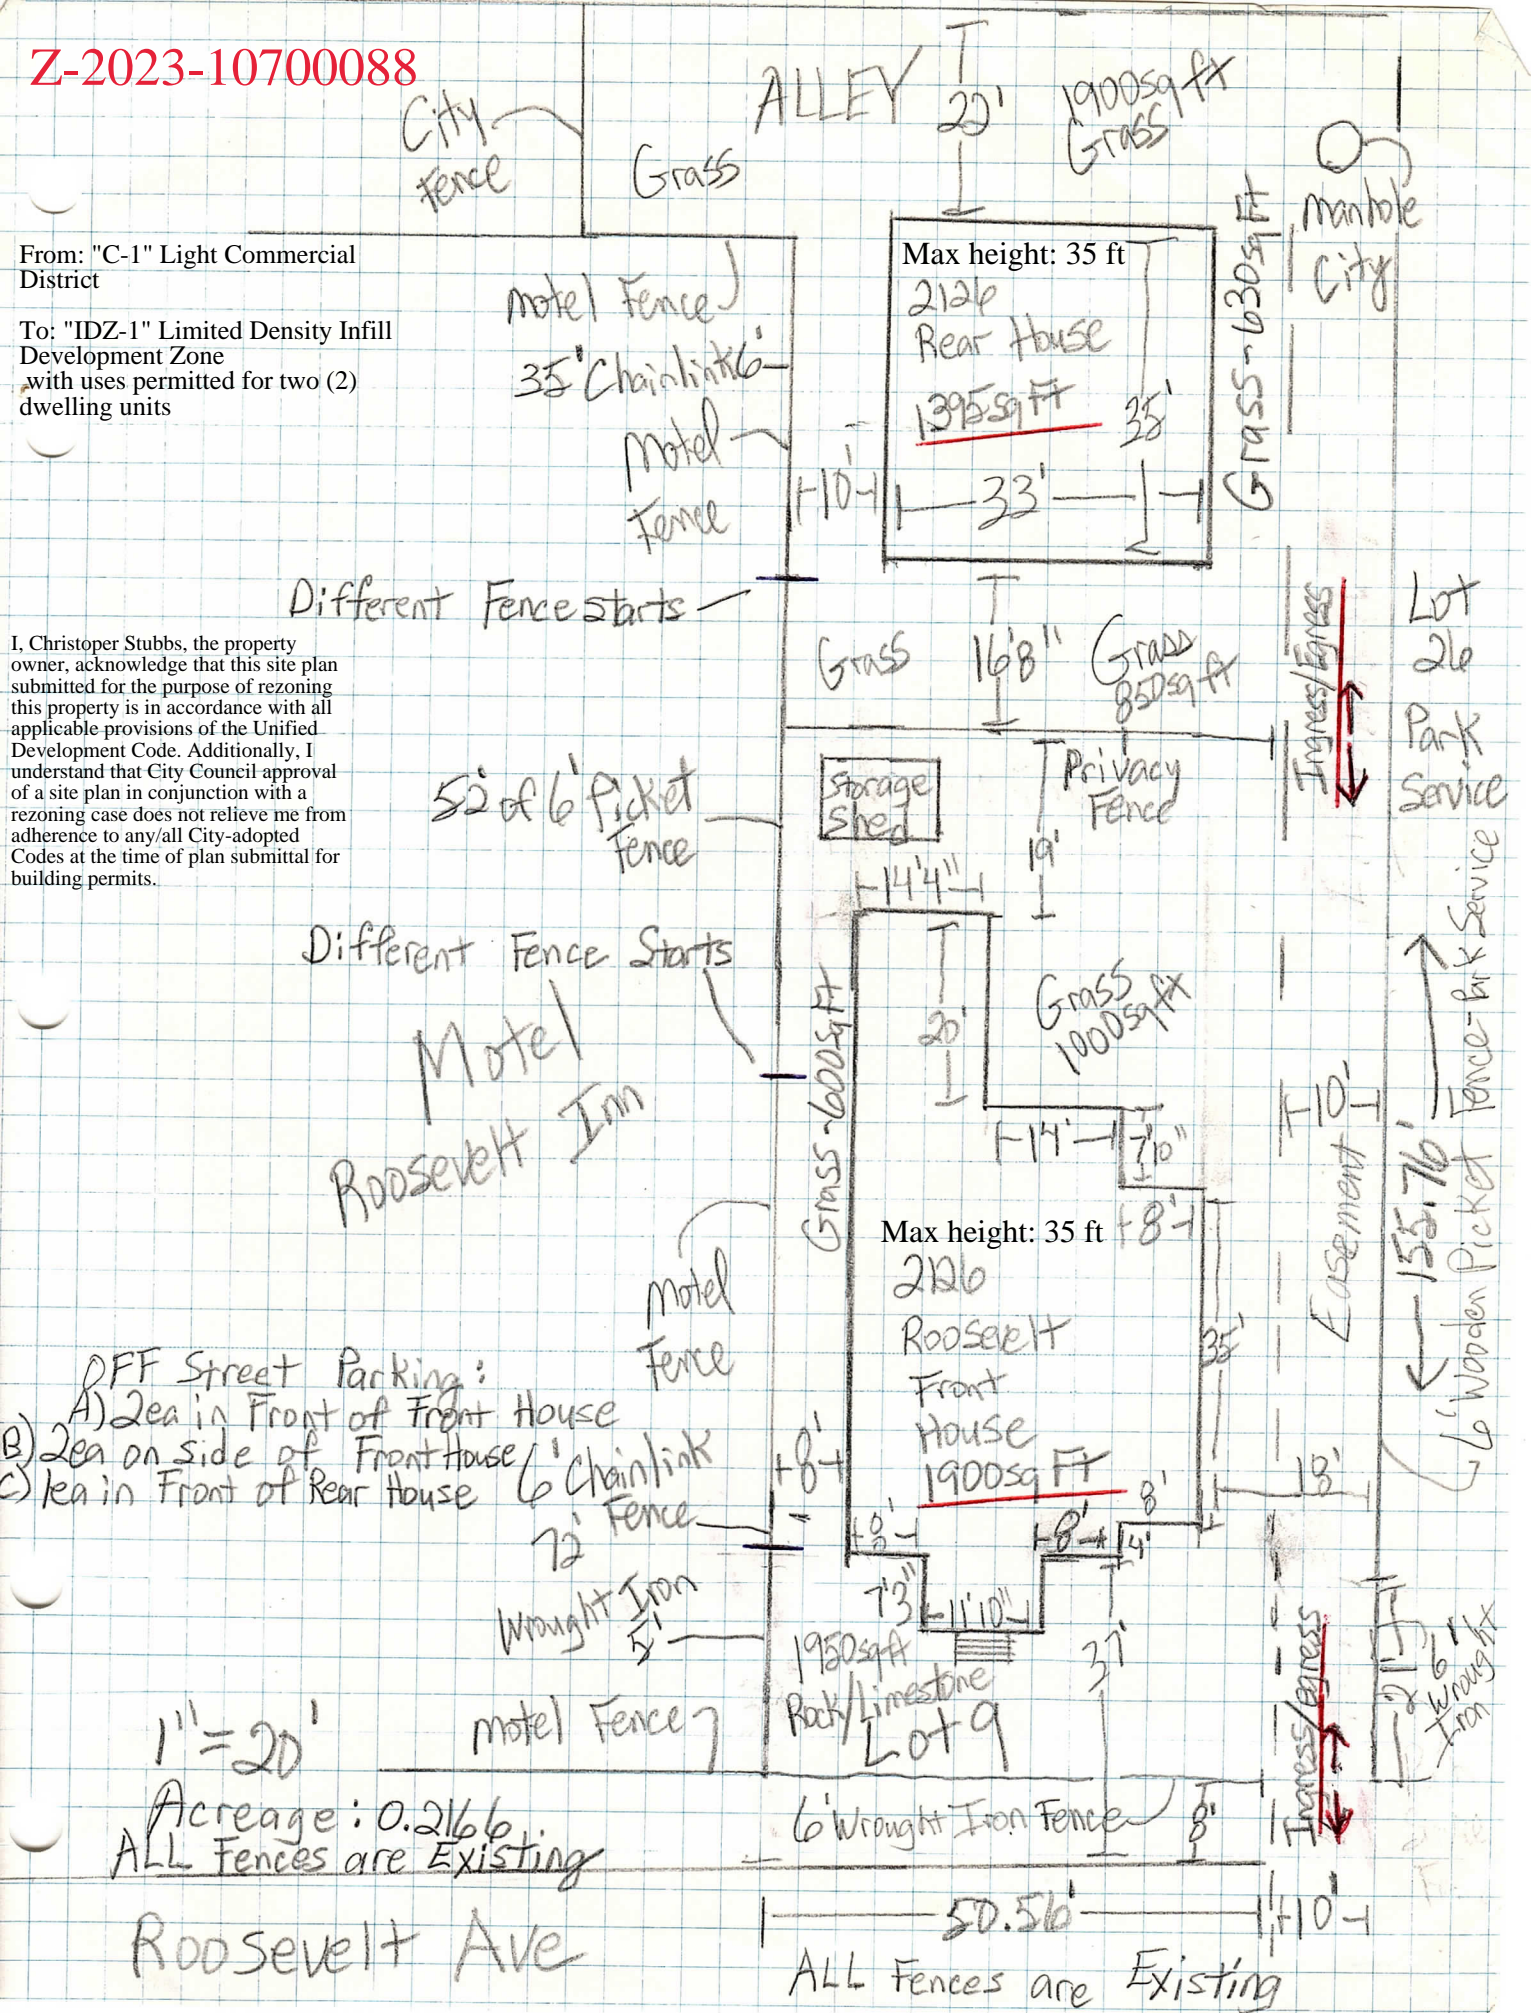 Z-2023-10700088
City
Fence
Grass
ALLEY
22'
1900sq ft
Grass
Manhole
City
From: "C-1" Light Commercial
District
To: "IDZ-1" Limited Density Infill
Development Zone
with uses permitted for two (2)
dwelling units
Motel Fence
35' Chainlink 6'
Motel
Fence
Max height: 35 ft
2126
Rear House
1395sq Ft
35'
33'
10'
Grass-630sq Ft
Different Fence starts
I, Christoper Stubbs, the property
owner, acknowledge that this site plan
submitted for the purpose of rezoning
this property is in accordance with all
applicable provisions of the Unified
Development Code. Additionally, I
understand that City Council approval
of a site plan in conjunction with a
rezoning case does not relieve me from
adherence to any/all City-adopted
Codes at the time of plan submittal for
building permits.
Grass
16'8"
Grass
850sq ft
Ingress/Egress
Lot
26
Park
Service
52' of 6' Picket
Fence
Storage
Shed
Privacy
Fence
19'
14'4"
Different Fence Starts
Motel
Roosevelt Inn
Grass-600sqft
20'
Grass
1000sq ft
14'
7'10"
8'
10'
Easement
155.76'
6' Wooden Picket Fence-Park Service
Motel
Fence
Max height: 35 ft
2126
Roosevelt
Front
House
1900sq Ft
35'
18'
OFF Street Parking:
A) 2ea in Front of Front House
B) 2ea on side of Front House
C) 1ea in Front of Rear House
6' Chainlink
72' Fence
8'
8'
8'
8'
4'
7'3"
11'10"
Wrought Iron
5'
1950sqft
Rock/Limestone
Lot 9
37'
Ingress/egress
21'
6'
Wrought
Iron
Motel Fence
1"=20'
Acreage: 0.2166
ALL Fences are Existing
6' Wrought Iron Fence
8'
50.56'
10'
Roosevelt Ave
ALL Fences are Existing